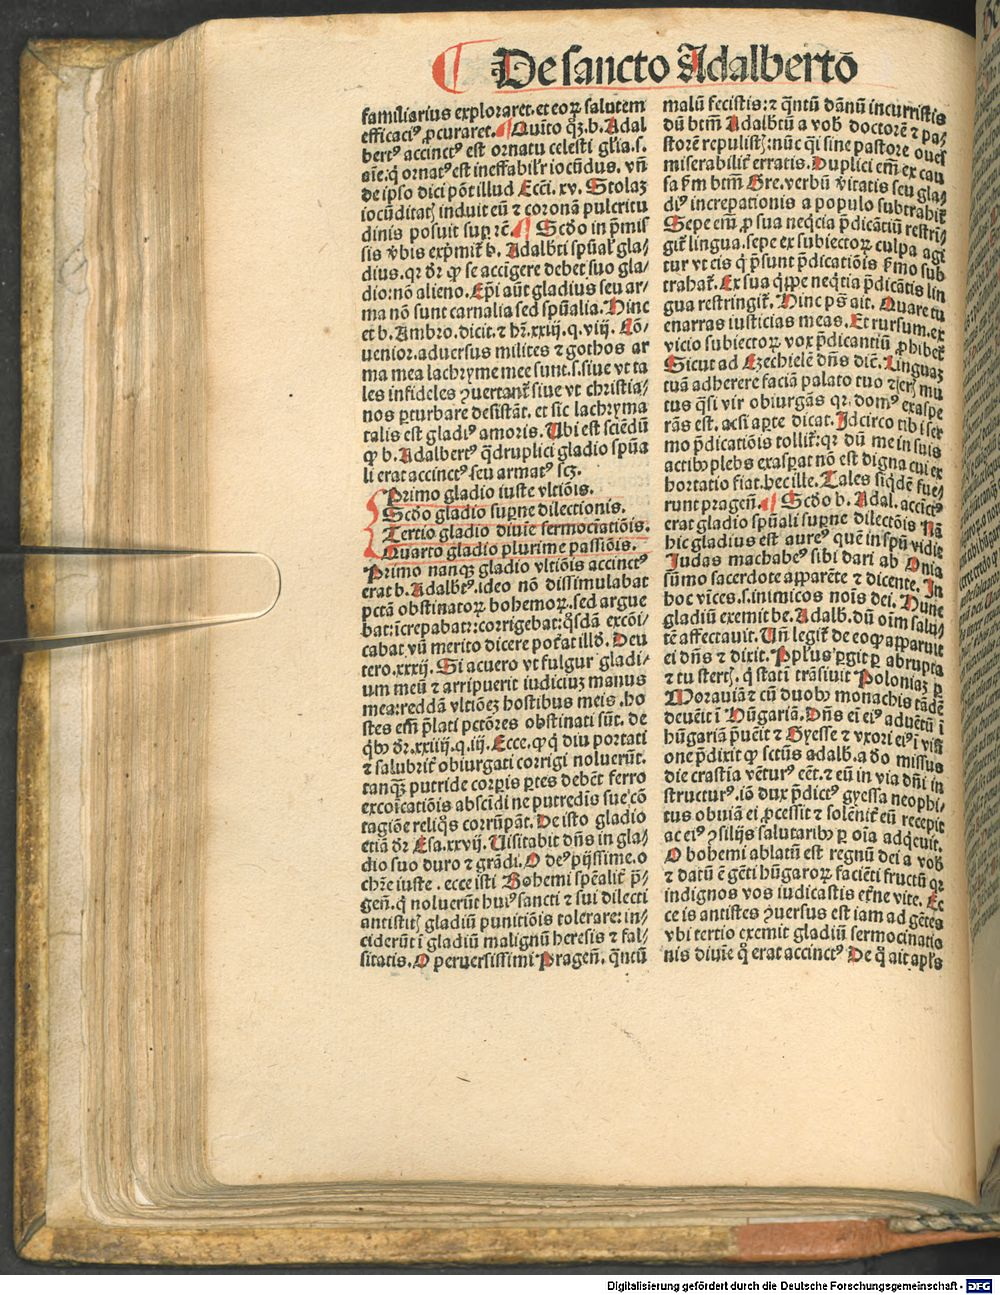 De sancto Adalberto
familiarius exploraret. et eoꝝ salutem
efficaciꝰ ꝓcuraret. Quīto qꝫ. b. Adal
bertꝰ accinctꝰ est ornatu celesti gl̄ia. s.
aīe: q̄ ornatꝰ est ineffabil'r iocūdus. vn̄
de ipso dici pōt illud Ecci. xv. Stolaꝫ
iocūditatꝭ induit eū ⁊ coronā pulcritu
dinis posuit suꝑ rē. Scd̄o in p̄mis
sis v̄bis exp̄mit̄ b. Adalb̄ti sp̄ual' gla⸗
dius. qr dr̄ ꝙ se accīgere debet suo gla⸗
dio: nō alieno. Ep̄i aūt gladius seu ar⸗
ma nō sunt carnalia sed sp̄ualia. Hinc
et b. Ambro. dicit. ⁊ hr̄. xxiij. q. viij. Cō⸗
uenior. aduersus milites ⁊ gothos ar
ma mea lachryme mee sunt. s. siue vt ta
les infideles ꝯuertant̄ siue vt christia⸗
nos ꝑturbare desistāt. et sic lachryma
talis est gladiꝰ amoris. Ubi est sciēdū
ꝙ b. Adalbertꝰ q̄druplici gladio sp̄ua
li erat accinctꝰ seu armatꝰ scꝫ.
Primo gladio iuste vltiōis.
Scd̄o gladio suꝑne dilectionis.
Tertio gladio diuīe sermocīatiōis.
Quarto gladio plurime passiōis.
Primo nanqꝫ gladio vltiōis accinctꝰ
erat b. Adalb̄tꝰ. ideo nō dissimulabat
pctā obstinatoꝝ bohemoꝝ. sed argue
bat: īcrepabat: ⁊ corrigebat: q̄sdā excōi⸗
cabat vn̄ merito dicere poťat illđ. Deu
tero. xxxij. Si acuero vt fulgur gladi⸗
um meū ⁊ arripuerit iudiciuꝫ manus
mea: reddā vltiōeꝫ hostibus meis. ho
stes em̄ p̄lati pctōres obstinati sūt. de
q̄bꝰ dr̄. xxiiij. q. iij. Ecce. ꝙ q̄ diu portati
⁊ salubrit̄ obiurgati corrigi noluerūt.
tanqꝫ putride corꝑis ꝑtes debēt ferro
excoīcatiōis abscīdi ne putredīs sue cō
tagiōe reliq̄s corrūpāt. De isto gladio
etiā dr̄ Esa. xxvij. Uisitabit dn̄s in gla⸗
dio suo duro ⁊ grādi. O deꝰ pijssime. o
chr̄e iuste. ecce isti Bohemi spēalit̄ p̄⸗
geñ. q̄ noluerūt huiꝰ sancti ⁊ sui dilecti
antistitꝭ gladiū punitiōis tolerare: in⸗
ciderūt ī gladiū malignū heresis ⁊ fal⸗
sitatis. O peruersissimi Prageñ. q̄ntū
malū fecistis: ⁊ q̄ntū dānū incurristis
dū btm̄ Adalb̄tū a vob̄ doctorē ⁊ pa⸗
storē repulistꝭ: nūc qi sine pastore oues
miserabilit̄ erratis. Duplici em̄ ex cau
sa fm̄ btm̄ Gre. verbū v̄itatis seu gla⸗
diꝰ increpationis a populo subtrahit̄.
Sepe em̄ ꝓ sua neq̄cia p̄dicātiū restrī⸗
git̄ lingua. sepe ex subiectoꝝ culpa agi
tur vt eis q̄ p̄sunt p̄dicatiōis s̄mo sub
trahat̄. Ex sua q̄ppe neq̄tia p̄dicātis lin
gua restringit̄. Hinc ps̄ ait. Quare tu
enarras iusticias meas. Et rursum. ex
vicio subiectoꝝ vox p̄dicantiū ꝓhibet̄
Sicut ad Ezechielē dn̄s dic̄. Linguaꝫ
tuā adherere faciā palato tuo ⁊ erꝭ mu
tus q̄si vir obiurgās qr. domꝰ exaspe
rās est. acsi aꝑte dicat. Idcirco tibi ser
mo p̄dicatiōis tollit̄: qr dū me in suis
actibꝰ plebs exasꝑat nō est digna cui ex
hortatio fiat. hec ille. Tales siq̄dē fue⸗
runt prageñ. Scd̄o b. Adal. accictꝰ
erat gladio sp̄uali suꝑne dilectōis Nā
hic gladius est aureꝰ quē in sp̄u vidit
Judas machabeꝰ sibi dari ab Onia
sūmo sacerdote aꝑparēte ⁊ dicente. In
hoc vīces. s. inimicos noīs dei. Hunc
gladiū exemit be. Adalb̄. dū oīm salu⸗
tē affectauit. Un̄ legit̄ de eo ꝙ apparuit
ei dn̄s ⁊ dixit. Ppl's ꝑgit ꝑ abrupta
⁊ tu stertꝭ. q̄ statī trāsiuit Poloniaꝫ ꝑ
Morauiā ⁊ cū duobꝰ monachis tādē
deuēit ī Hūgariā. Dn̄s eī eiꝰ aduētū ī
hūgariā p̄uēit ⁊ Gyesse ⁊ vxori eiꝰ ī visi
one p̄dixit ꝙ sctūs adalb̄. a dō missus
die crastīa vēturꝰ eēt. ⁊ eū in via dn̄i in
structurꝰ. iō dux p̄dictꝰ gyessa neophi⸗
tus obuiā ei ꝓcessit ⁊ solēnit̄ eū recepit
ac eiꝰ ꝯsilijs salutaribꝰ ꝑ oīa adq̄euit.
O bohemi ablatū est regnū dei a vob̄
⁊ datū ē gēti hūgaroꝝ faciēti fructū qr
indignos vos iudicastis et̄ne vite. Ec
ce is antistes ꝯuersus est iam ad gētes
vbi tertio exemit gladiū sermocinatio
nis diuīe q̄ erat accinctꝰ De q̄ ait apl's
Digitalisierung gefördert durch die Deutsche Forschungsgemeinschaft - DFG